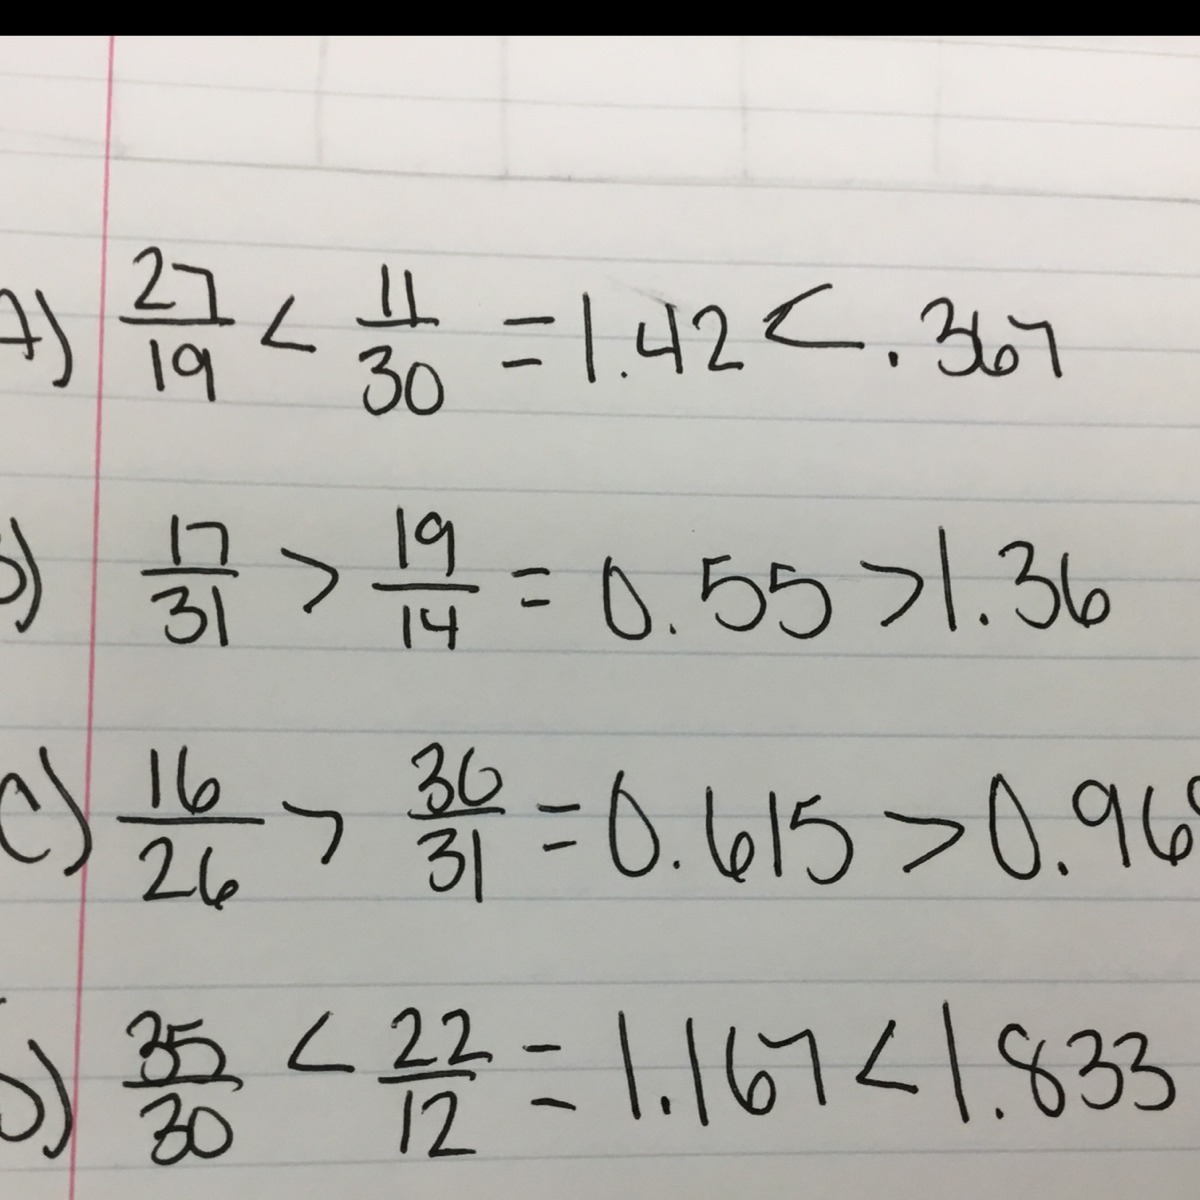 A) 27/19 < 11/30 = 1.42 < .367
B) 17/31 > 19/14 = 0.55 > 1.36
C) 16/26 > 30/31 = 0.615 > 0.968
D) 35/30 < 22/12 = 1.167 < 1.833